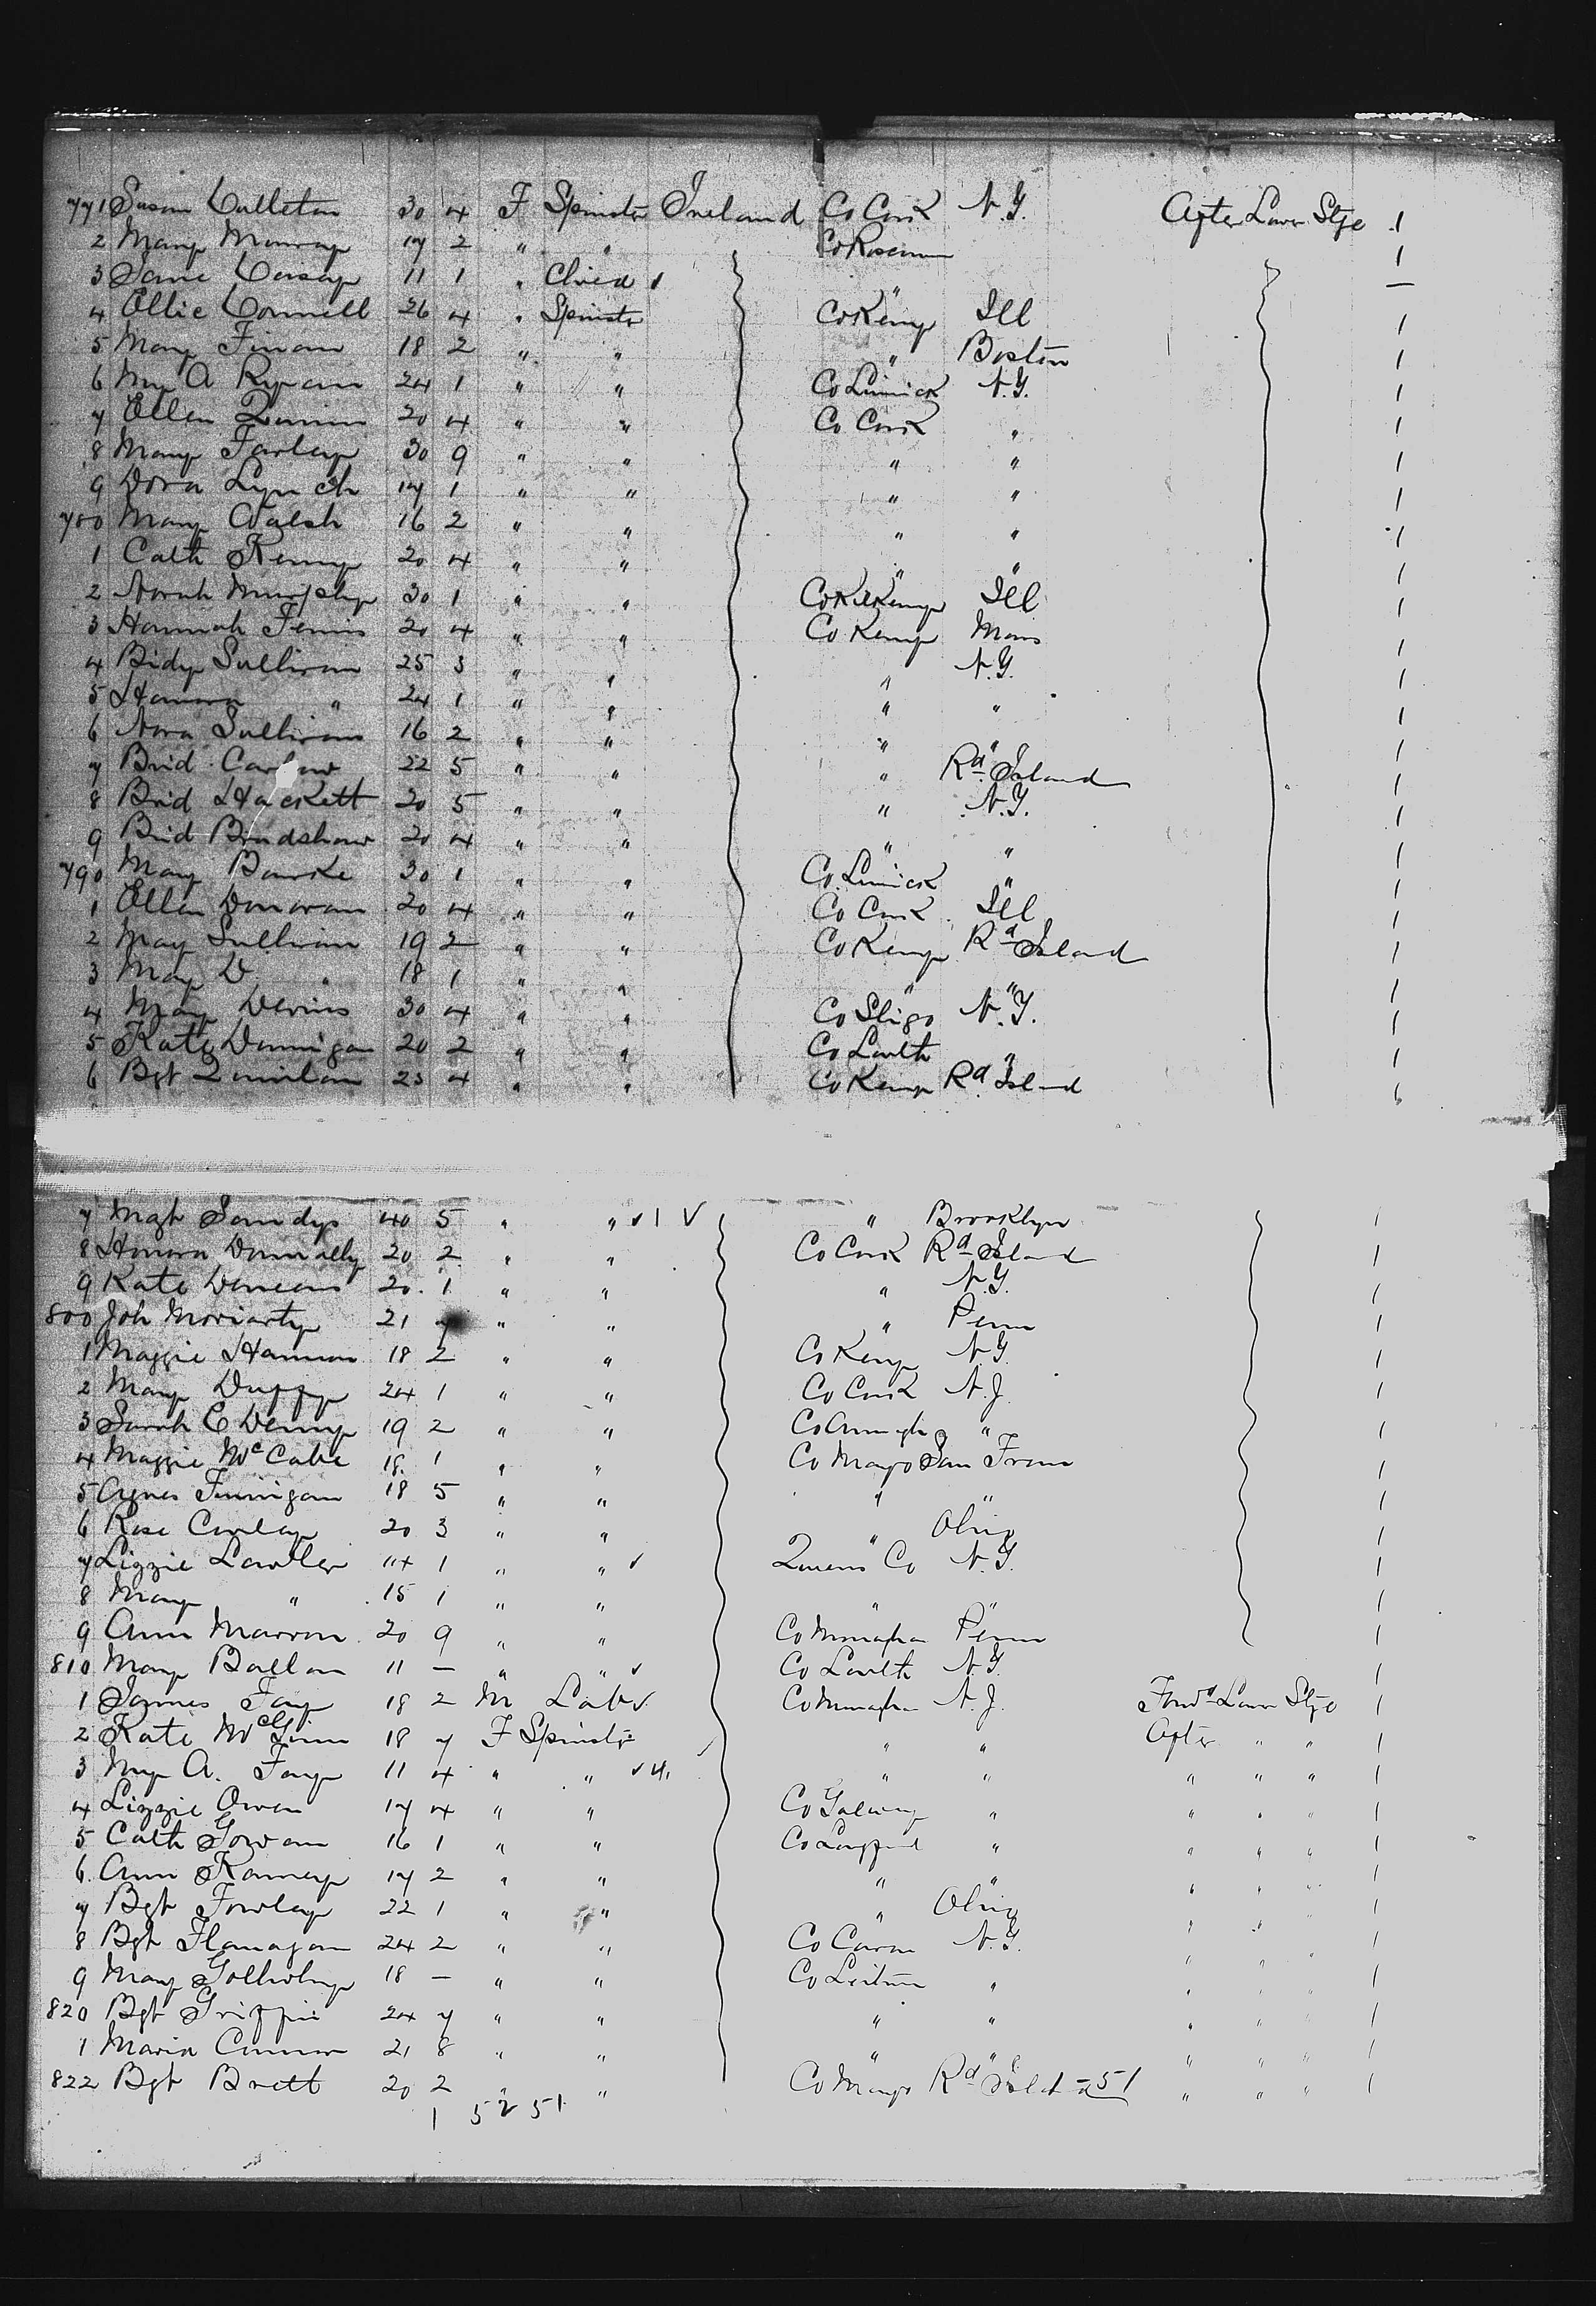 771 Susan Culleton 30 4 F Spinster Ireland Co Cork N.Y. After Lower Stge 1
2 Mary Murray 17 2 " " Co Roscmn 1
3 Janie 11 1 " Child ✓ " —
4 Ellie Connell 26 4 " Spinster Co Kerry Ill 1
5 Mary Finan 18 2 " " " Boston 1
6 My A Ryan 24 1 " " Co Limrick N.Y. 1
7 Ellen Quinn 20 4 " " Co Cork " 1
8 Mary Farley 30 9 " " " " 1
9 Dora Lynch 17 1 " " " " 1
780 Mary Walsh 16 2 " " " " 1
1 Cath Kenny 20 4 " " " " 1
2 Norah Murphy 30 1 " " Co Kilkenny Ill 1
3 Hannah Ferris 20 4 " " Co Kerry Mass 1
4 Bidy Sullivan 25 3 " " " N.Y. 1
5 Hanora " 24 1 " " " " 1
6 Nora Sullivan 16 2 " " " " 1
7 Brid 22 5 " " " Rd Island 1
8 Brid Hackett 20 5 " " " N.Y. 1
9 Brid Bradshaw 20 4 " " " " 1
790 Mary Bourke 30 1 " " Co Limrick " 1
1 Ellen Donovan 20 4 " " Co Cork Ill 1
2 May Sullivan 19 2 " " Co Kerry Rd Island 1
3 May D " 18 1 " " " " 1
4 May Devins 30 4 " " Co Sligo N.Y. 1
5 Kate Dunnigan 20 2 " " Co Louth " 1
6 Bgt Quinlan 23 4 " " Co Kerry Rd Island
7 Mgt Sandys 40 5 " " ✓ 1 ✓ " Brooklyn 1
8 Honora Donnelly 20 2 " " Co Cork Rd Island 1
9 Kate Duncan 20 1 " " " N.Y. 1
800 Joh Moriarty 21 7 " " " Penn 1
1 Maggie Hannon 18 2 " " Co Kerry N.Y. 1
2 Mary Duffy 24 1 " " Co Cork N.J. 1
3 Sarah E Denny 19 2 " " Co Armagh " 1
4 Maggie McCabe 18 1 " " Co Mayo San Fran 1
5 Agnes Finnigan 18 5 " " " " 1
6 Rose Conley 20 3 " " " Ohio 1
7 Lizzie Lawller 1 " " ✓ Queens Co N.Y. 1
8 Mary " 15 1 " " " " 1
9 Ann Marron 20 9 " " Co Monaghan Penn 1
810 Mary Ballan 11 — " " ✓ Co Louth N.Y. 1
1 James Fay 18 2 M Labr Co Monaghan N.J. Forwd Lower Stge 1
2 Kate McGinn 18 7 F Spinster " " After " " 1
3 My A. Fay 11 4 " " ✓ " " " " " 1
4 Lizzie Owen 17 4 " " Co Galway " " " " 1
5 Cath Gowan 16 1 " " Co Longford " " " " 1
6 Ann Kanney 17 2 " " " " " " " 1
7 Bgt Fowley 22 1 " " " Ohio " " " 1
8 Bgt Flanagan 24 2 " " Co Cavan N.Y. " " " 1
9 Mary 18 — " " Co Leitrim " " " " 1
820 Bgt Griffin 24 7 " " " " " " " 1
1 Maria Connor 21 8 " " " " " " " 1
822 Bgt Brett 20 2 " " Co Mayo Rd Isld 51 " " " 1
1 52 51